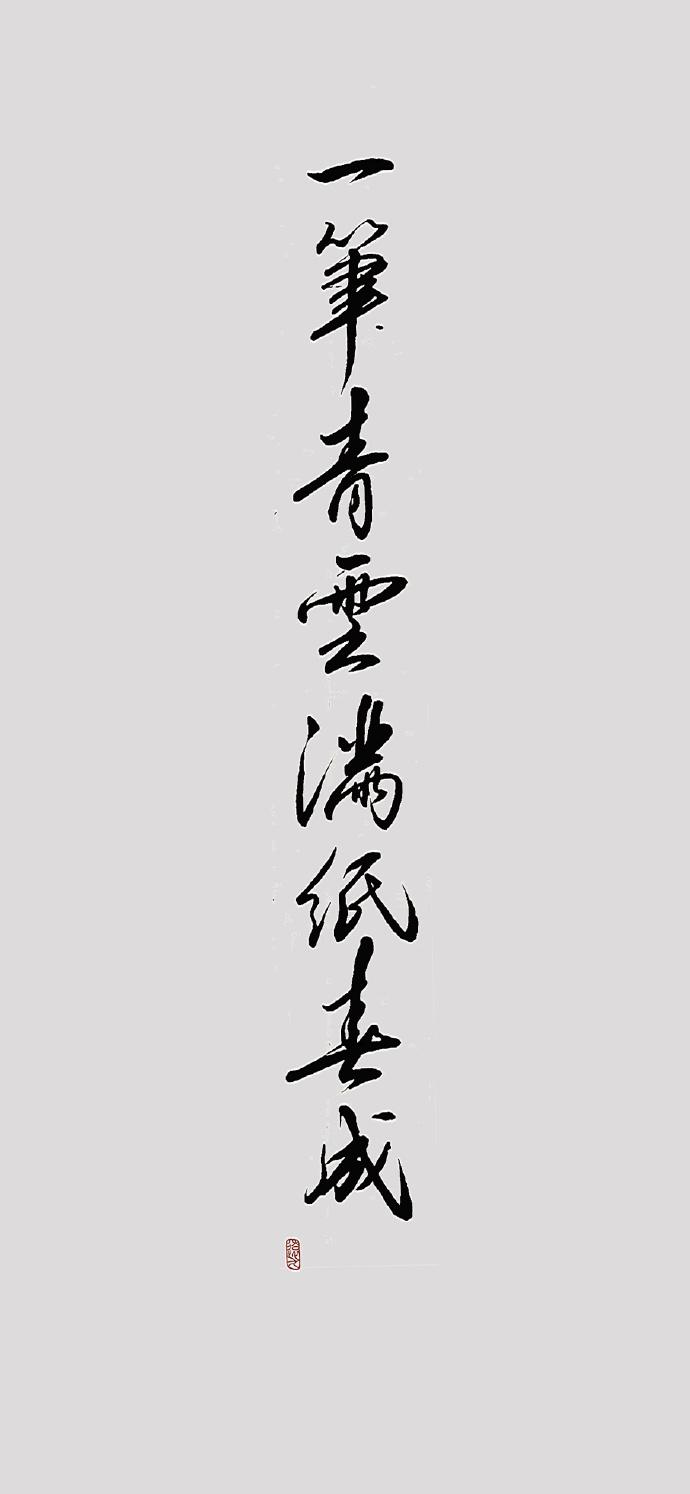 一筆青雲滿紙春成